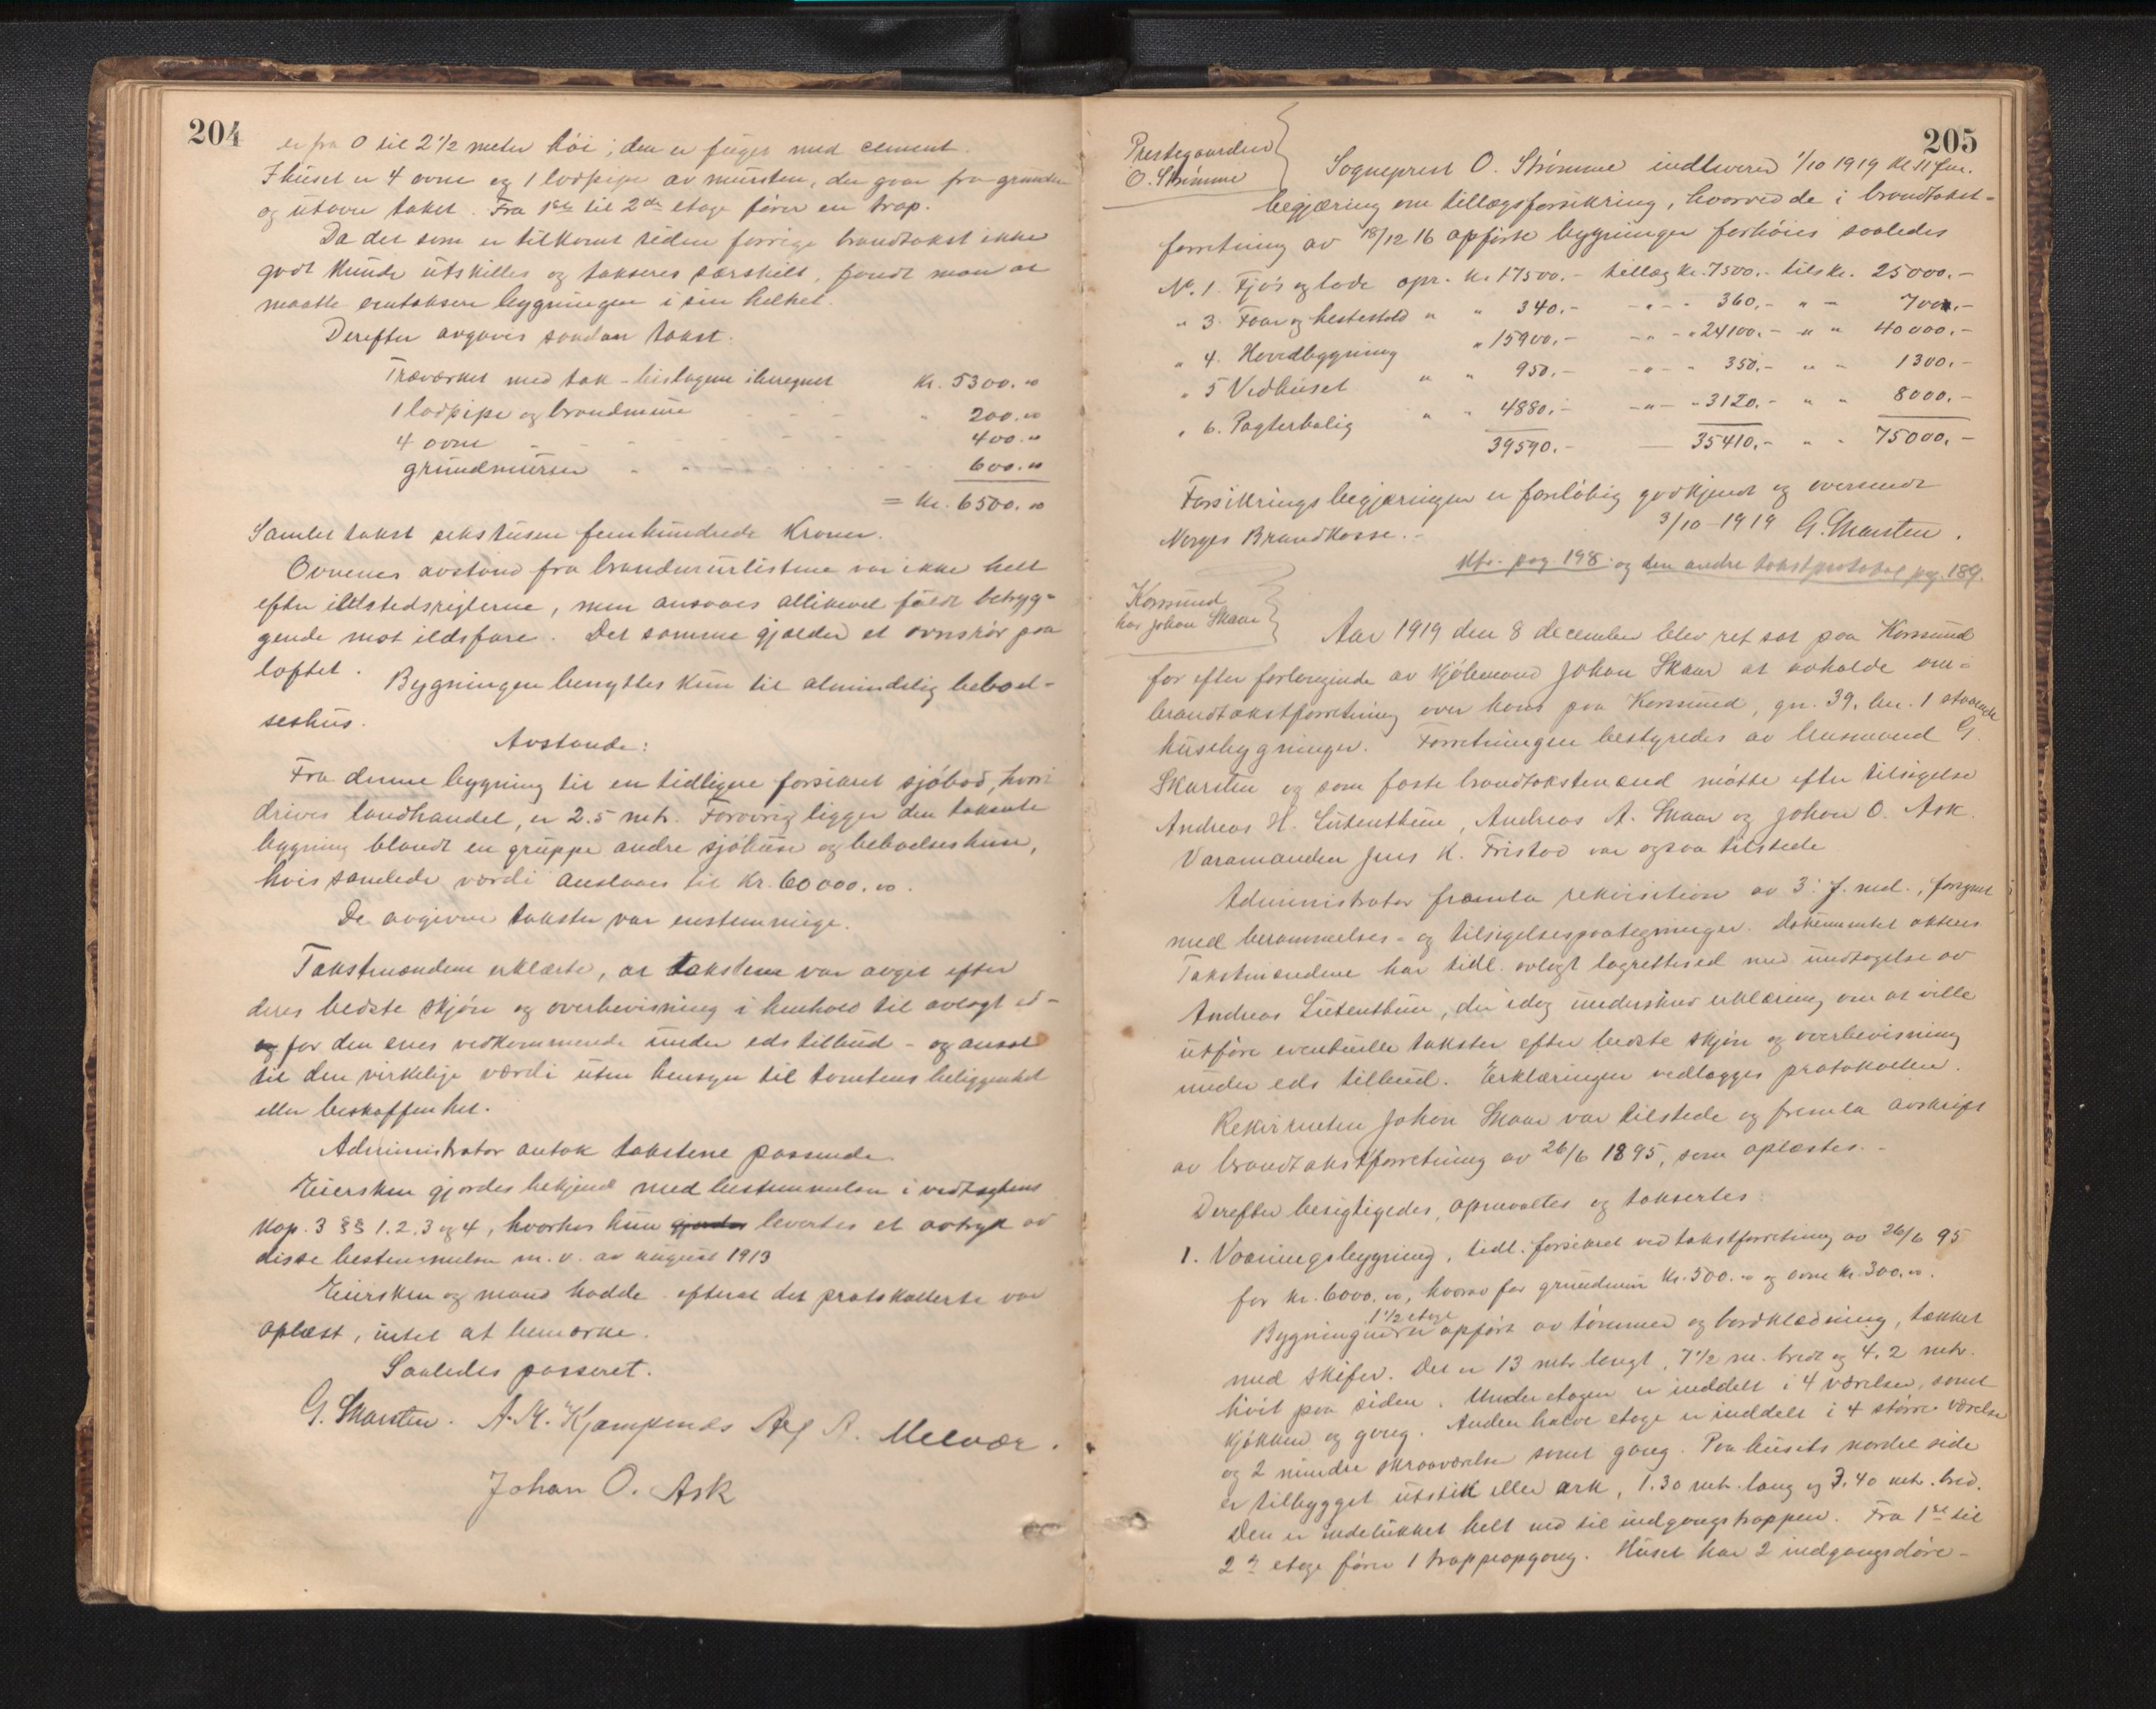 204
er fra 0 til 2 1/2 meter høi; den er fuget med cement.
I huset er 4 ovne og 1 lodpipe av mursten, der gaar fra grunden
og utover taket. Fra 1ste til 2den etage fører en trap.
Da det som er tilkomt siden forrige brandtakst ikke
godt kunde utskilles og takseres særskilt, fandt man at
maatte omtaksere bygningen i sin helhet.
Derefter avgaves saadan takst:
Træverket med tak-beslagene iberegnet Kr. 5300.00
1 lodpipe og brandmure - - - " 200.00
4 ovne - - - - - 400.00
grundmuren - - - - - 600.00
= Kr. 6500.00
Samlet takst sekstusen femhundrede Kroner.
Ovnenes avstand fra brandmurlistene var ikke helt
efter ildstedsreglerne, men ansaaes allikevel fuldt betryg-
gende mot ildsfare. Det samme gjælder et ovnsrør paa
loftet. Bygningen benyttes kun til almindelig beboel-
seshus.
Avstande:
Fra denne bygning til en tidligere forsikret sjøbod, hvori
drives landhandel, er 2.5 mtr. Forøvrig ligger den takserte
bygning blandt en gruppe andre sjøhuse og beboelseshuse,
hvis samlede værdi anslaaes til Kr. 60000.00.
De avgivne takster var enstemmige.
Takstmændene erklærte, at takstene var avget efter
deres bedste skjøn og overbevisning i henhold til avlagt ed -
og for den enes vedkommende under eds tilbud - og ansat
til den virkelige værdi uten hensyn til tomtens beliggenhet
eller beskaffenhet.
Administrator antok takstene passende.
Eiersken gjordes bekjend med bestemmelsen i vedtægtens
Kap. 3 §§ 1.2.3 og 4, hvorhos hun gjordes levertes et avtryk av
disse bestemmelser m.v. av august 1913
Eiersken og mand hadde efterat det protokollerte var
oplæst, intet at bemerke.
Saaledes passeret.
G. Skarsten. A. M. Kjampenes Alf R. Melvær.
Johan O. Ask
205
Prestegaarden
O. Strømme
Sogneprest O. Strømme indleverer 1/10 1919 kl 11 fm.
begjæring om tillægsforsikring, hvorved de i brandtakst-
forretning av 18/12 16 opførte bygninger forhøies saaledes
No. 1. Fjøs og lade opr. Kr. 17500.- tillæg Kr. 7500.- tils Kr. 25000.-
" 3. Faar og hestestald " " 340.- - " - 360.- " - 700.-
" 4. Hovedbygning " 15900.- - " - " 24100.- " " 40000.-
" 5 Vedhuset " " 950.- - " - 350.- " - 1300.-
" 6. Pagterbolig " " 4880.- - " - " 3120.- " " 8000.-
39590.- — 35410.- " " 75000.-
Forsikringsbegjæringen er foreløbig godkjendt og oversendt
Norges Brandkasse. - 3/10 - 1919 G. Skarsten.
Kfr. pag 198. og den andre takstprotokol pag. 189.
Korssund
hos Johan Skaar
Aar 1919 den 8 december blev ret sat paa Korssund
for efter forlangende av kjøbmand Johan Skaar at avholde om-
brandtakstforretning over hans paa Korssund, gn. 39. bn. 1 staaende
husebygninger. Forretningen bestyredes av lensmand G.
Skarsten og som faste brandtakstmænd møtte efter tilsigelse
Andreas H. Lutenthun, Andreas A. Skaar og Johan O. Ask.
Varamanden Jens K. Tristad var ogsaa tilstede
Administrator framla rekvisition av 3. f. md., forsynet
med berammelses- og tilsigelsespaategninger. Dokumentet aktens
Takstmændene har tidl. avlagt lagrettesed med undtagelse av
Andreas Lutenthun, der idag underskrev erklæring om at ville
utføre eventuelle takster efter bedste skjøn og overbevisning
under eds tilbud. Erklæringen vedlægges protokollen.
Rekvirenten Johan Skaar var tilstede og fremla avskrift
av brandtakstforretning av 26/6 1895, som oplæstes. -
Derefter besigtigedes, opmaaltes og taksertes:
1. Vaaningsbygning, tidl. forsikret ved takstforretning av 26/6 95
for kr. 6000.00, hvorav for grundmur Kr. 500.00 og ovne Kr. 300.00.
Bygningen er 1 1/2 etage opført av tømmer og bordklædning, tækket
med skifer. Det er 13 mtr langt, 7 1/2 m. bredt og 4.2 mtr.
høit paa siden. Underetagen er inddelt i 4 værelser, samt
kjøkken og gang. Anden halve etage er inddelt i 4 større værelser
og 2 mindre skraaværelser samt gang. Paa husets nordre side
er tilbygget utstik eller ark, 1.30 mtr. lang og 3.40 mtr. bred.
Den er indelukket helt ned til indgangstrappen. Fra 1ste til
2den etage fører 1 trappeopgang. Huset har 2 indgangsdøre-